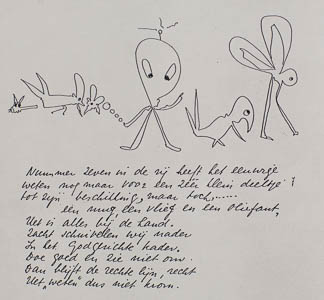 Nummer zeven in de rij heeft het eeuwige
weten nog maar voor een zéér klein deeltje!
tot zijn beschikking, maar toch,......
een mug, een vlieg en een olifant,
Het is alles bij de hand.
Zacht schuivelen wij nader
In het Godgerichte kader.
Doe goed en zie niet om.
Dan blijft de rechte lijn, recht
Het „weten" dus niet krom.